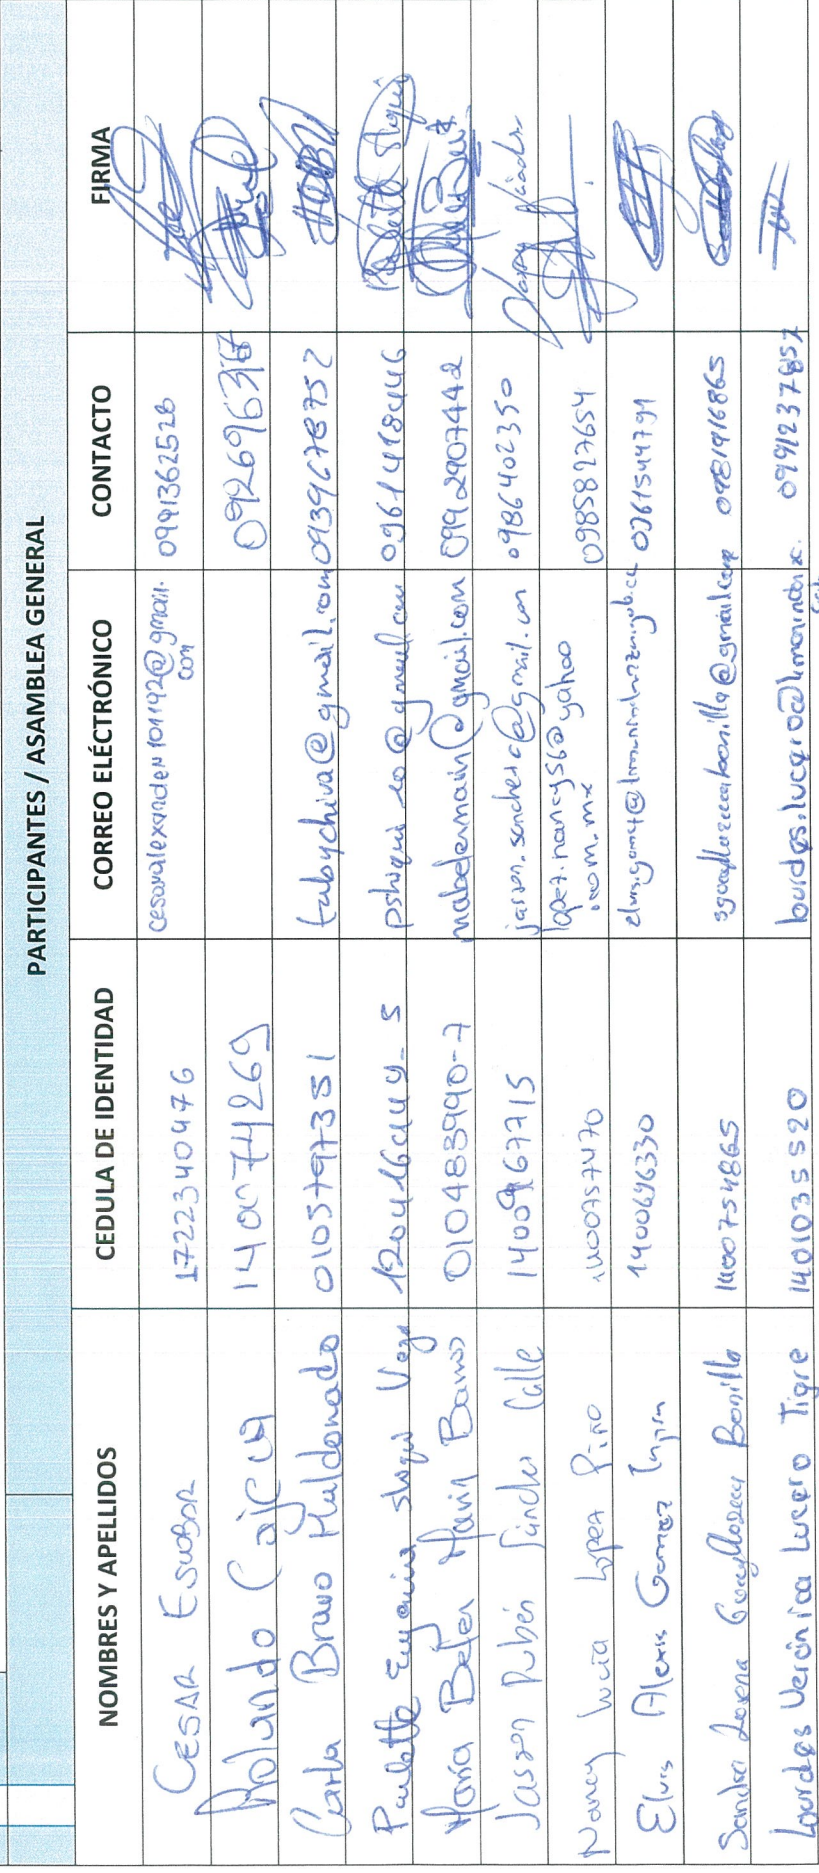 PARTICIPANTES / ASAMBLEA GENERAL
NOMBRES Y APELLIDOS CEDULA DE IDENTIDAD CORREO ELÉCTRÓNICO CONTACTO FIRMA
CESAR ESCOBAR 1722340476 cesaralexander101192@gmail.com 0991362528
Rolando Cajeca 1400774269
Carla Bravo Maldonado 0105797351 fabychiva@gmail.com 0939678752
Paulette Eugenia Shiqui Vega 0961418446 Paulette Shiqui
María Belen Marin Barros 010483990-7 mabelemain@gmail.com 0992907442
Jasson Rubén Sánchez Calle 1400967715 jasson.sanchez.c@gmail.com 0986402350
Nancy Lucía Lopez Pino 1400757470 lopez.nancy56@yahoo.com.mx 0985827654
Elvis Alexis Gomez 1400696330 0961544791
Sandra Lorena Guayllazaca Bonilla 1400754865 0981916865
Lourdes Verónica Lucero Tigre 1401035520 0991237852